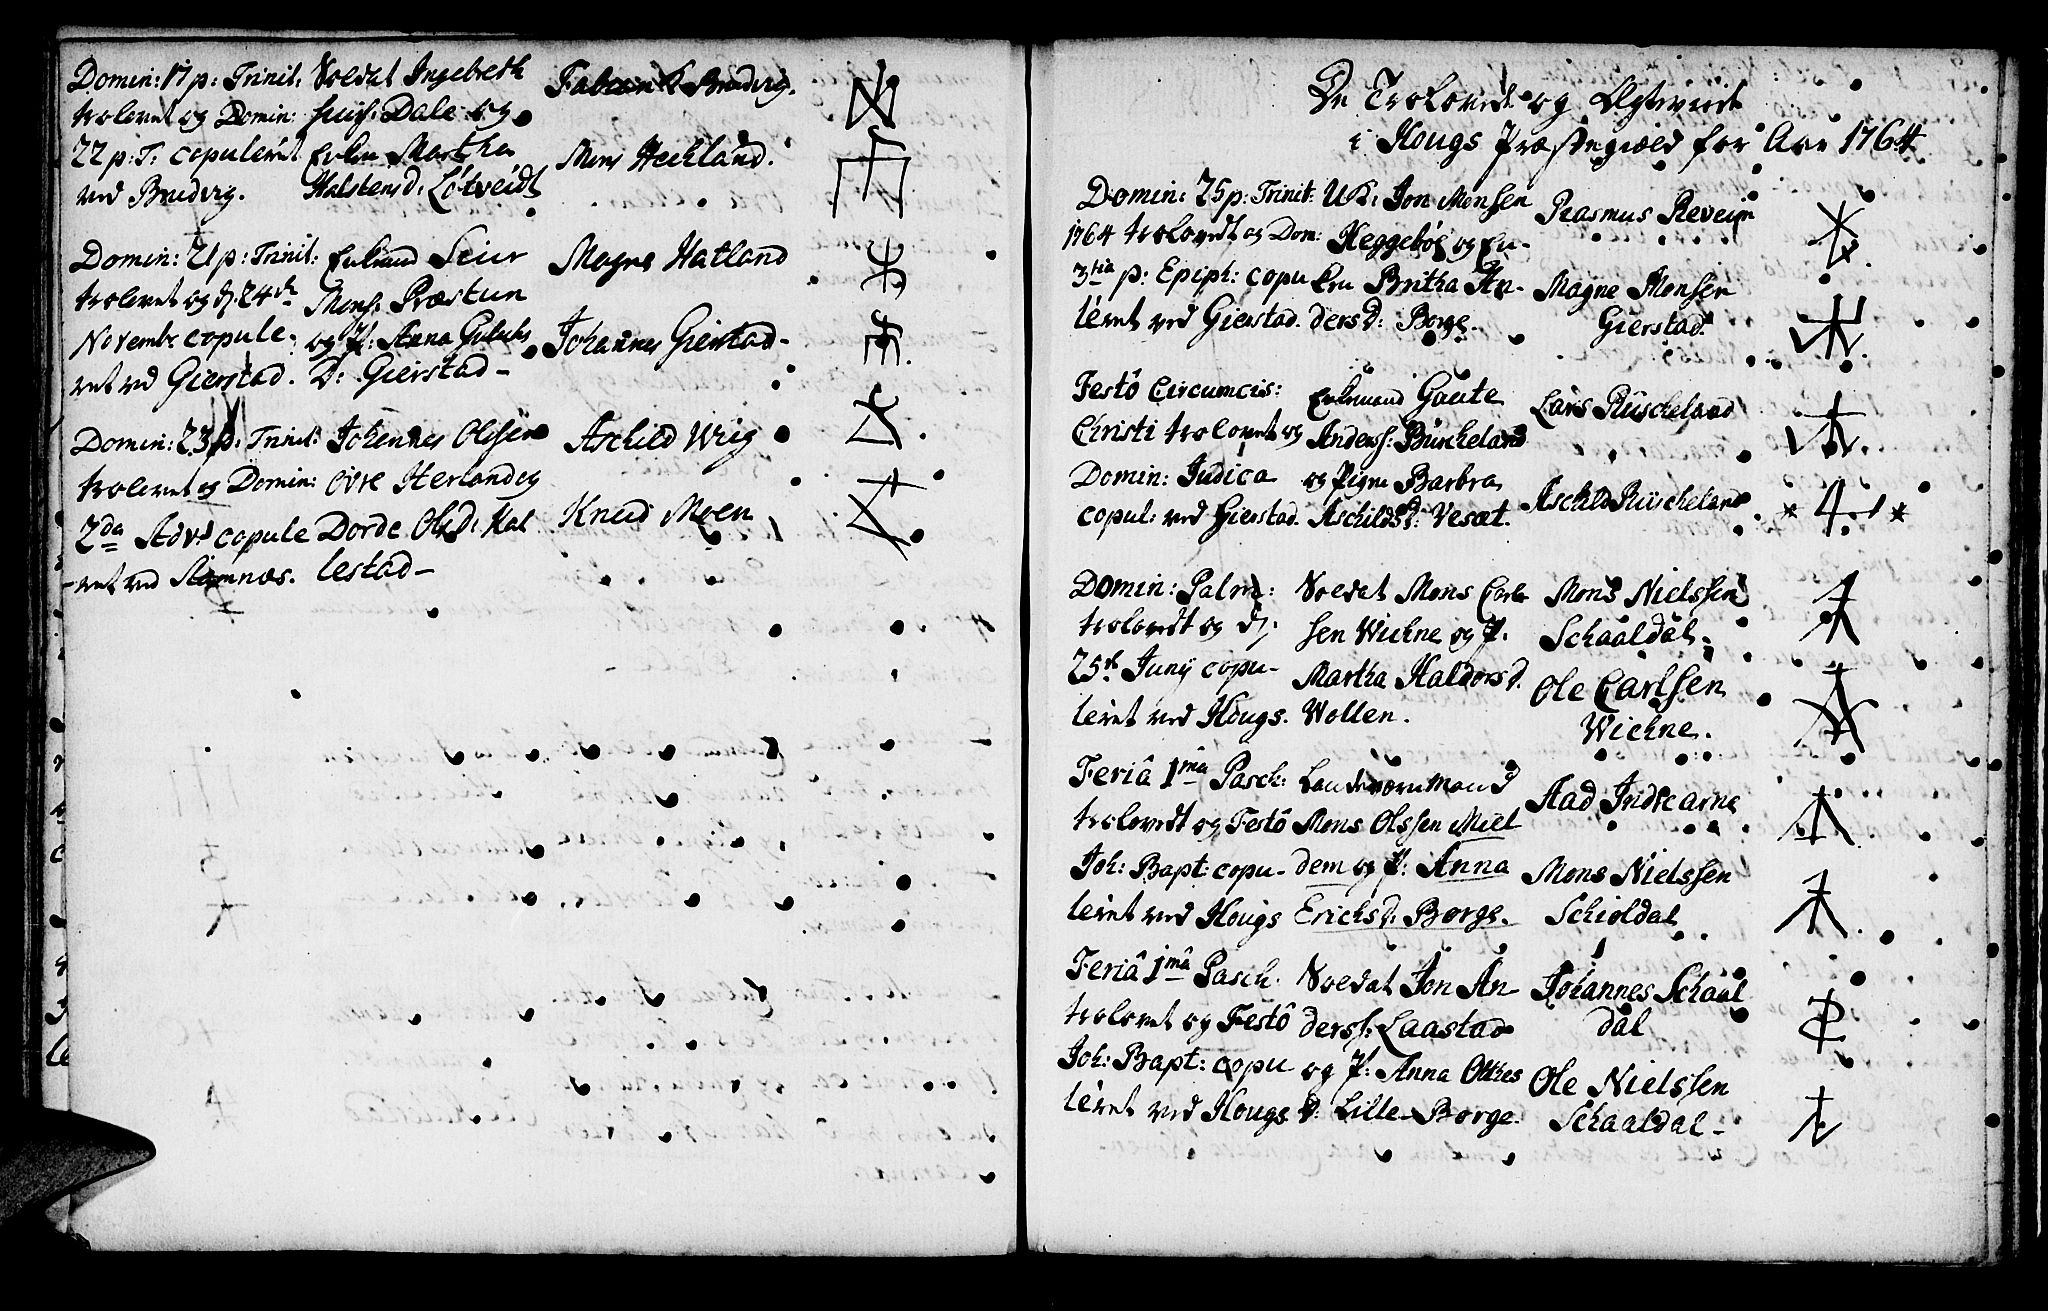 Domin: 17 p: Trinit.
trolovet og Domin:
22 p: T. copuleret
ved Bruvig.
Soldat Ingebreth
Dale og
Enken Martha
Halstensd:
Fabian Bruvig.
Mons Heckland.
Domin: 21 p: Trinit:
trolovet og d. 24de
Novembr copule-
ret ved Gierstad.
Enkemand Seiur
Mons: Præstun
og P: Anna
D: Gierstad-
Magne Hatland
Johannes Gierstad-
Domin: 23 p: Trinit:
trolovet og Domin:
2da Adv: copule
ret ved Stamnæs.
Johannes Olssen
övre Herland og
Dorde Olsd: Kal
lestad-
Aschild Wiig
Knud Moen
De Trolovede og Ægteviede
i Hougs Præstegield for Aar 1764
Domin: 25 p: Trinit:
1764 trolovedt og Dom:
3tia p: Epiph: copu
leret ved Gierstad.
UK: Jon Monsen
Heggebøe og En-
ken Britha An-
dersd: Borge.
Rasmus Reveim
Magne Monsen
Gierstad
Festô Circumcis:
Christi trolovet og
Domin: Judica
copul: ved Gierstad.
Enkemand Gaute
Anders: Brücheland
og Pigen Barbra
Aschildsd: Vesæt.
Lars Rüscheland
Aschild Rüscheland
Domin: Palm:
trolovedt og d.
25de Junij copu-
leret ved Hougs.
Soldat Mons Carl
sen Wichne og P.
Martha Haldorsd.
Vollen.
Mons Nielssen
Schaaldal
Ole Carlssen
Wichne.
Feriâ 1mâ Pasch:
trolovedt og Festô
Joh: Bapt: copu-
leret ved Hougs
Landeværnmand
Mons Olssen Miel
dem og P: Anna
Erichsd: Borge.
Aad Indre arne
Mons Nielssen
Schioldal
Feriâ 1mâ Pasch.
trolovet og Festô
Joh: Bapt: copu
leret ved Hougs
Soldat Jon An
derss: Laastad
og P: Anna
D: Lille-Borge.
Johannes Schaal
dal
Ole Nielssen
Schaaldal-